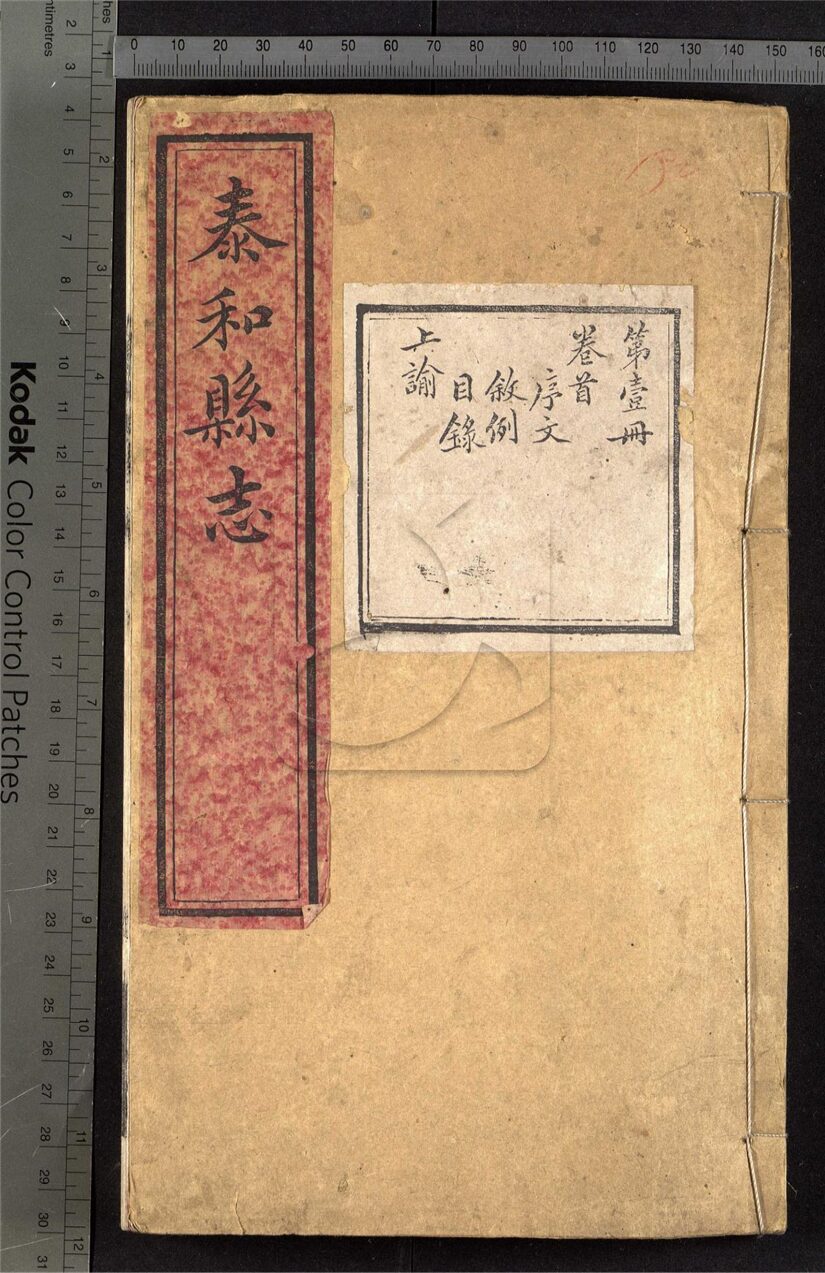 泰和縣志
第壹冊
卷首
序文
敘例
目錄
上諭
Kodak Color Control Patches
0 10 20 30 40 50 60 70 80 90 100 110 120 130 140 150 160
2 3 4 5 6 7 8 9 10 11 12 13 14 15 16 17 18 19 20 21 22 23 24 25 26 27 28 29 30 31
1 2 3 4 5 6 7 8 9 10 11 12